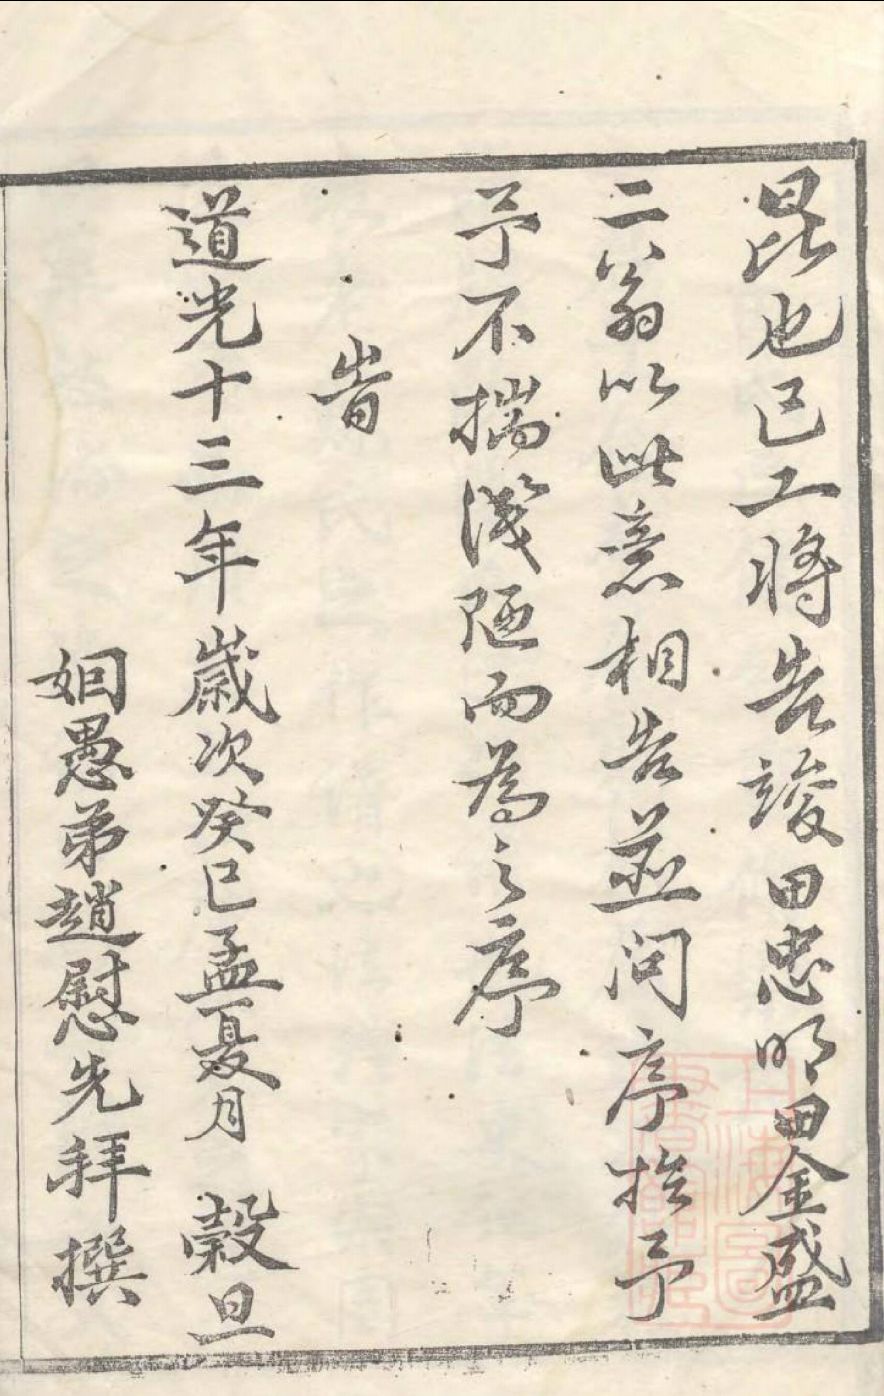 昆也已工將告竣田忠明田金盛
二翁以此意相告並问序於予
予不揣淺陋而為之序
旹
道光十三年歲次癸巳孟夏月 穀旦
姻愚弟趙慰先拜撰
上海圖書館藏